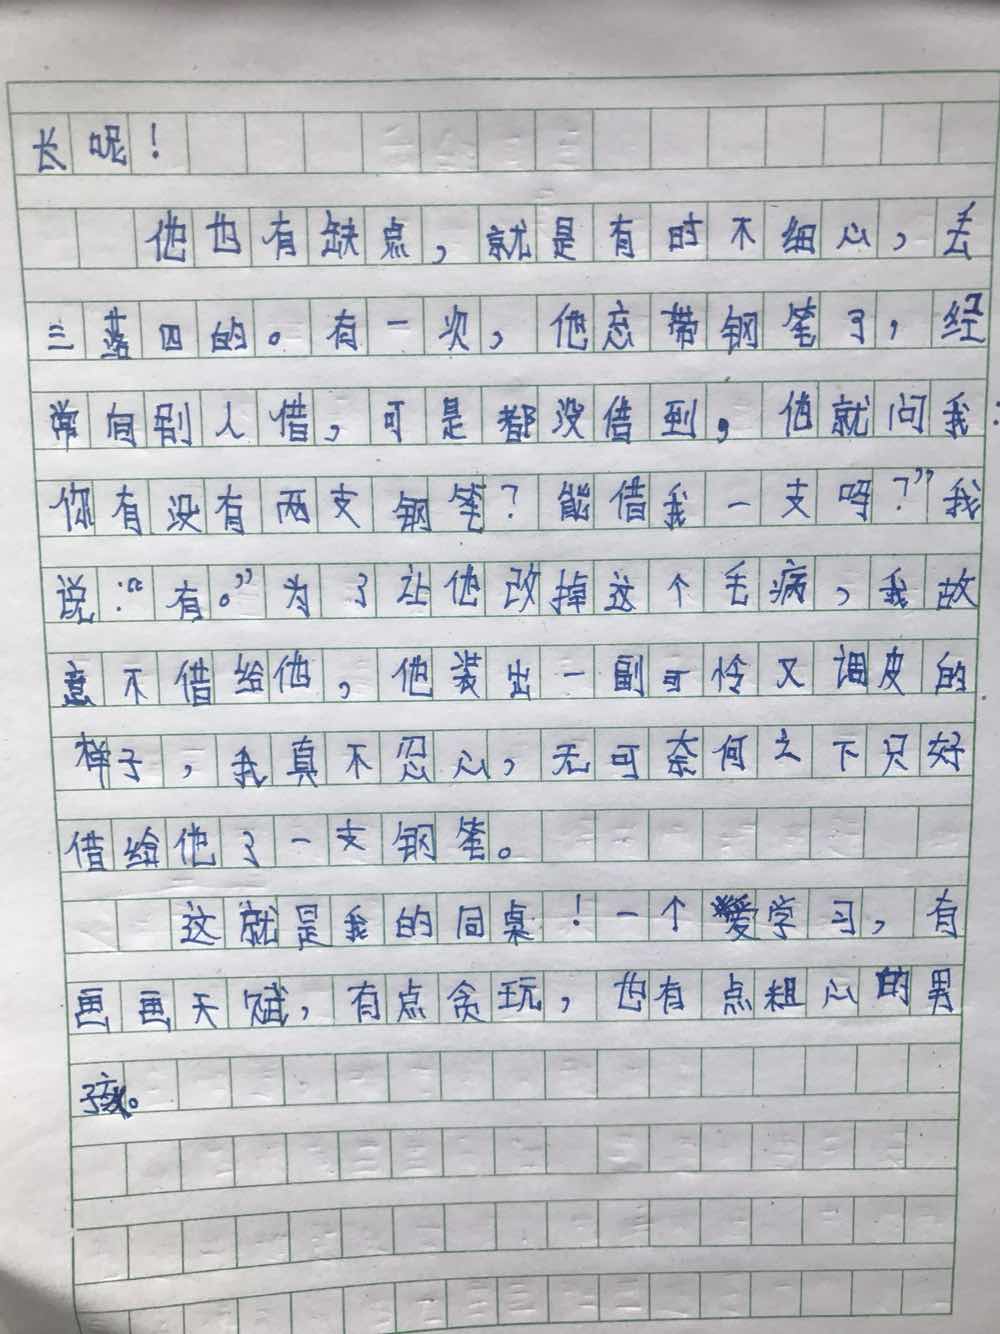 长呢！
他也有缺点，就是有时不细心，丢
三落四的。有一次，他忘带钢笔了，经
常向别人借，可是都没借到，他就问我：
你有没有两支钢笔？能借我一支吗？”我
说：“有。”为了让他改掉这个毛病，我故
意不借给他，他装出一副可怜又调皮的
样子，我真不忍心，无可奈何之下只好
借给他了一支钢笔。
这就是我的同桌！一个爱学习，有
画画天赋，有点贪玩，也有点粗心的男
孩。